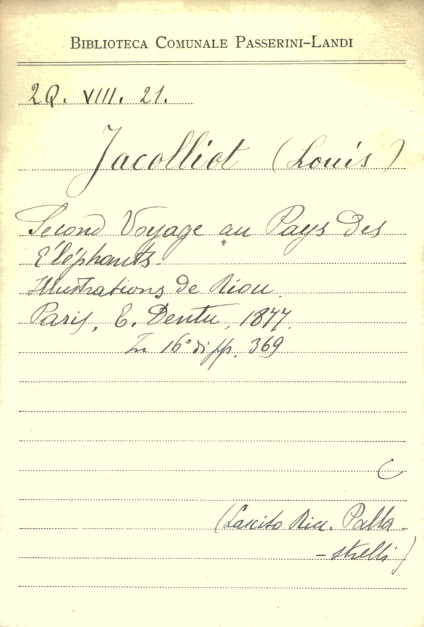 BIBLIOTECA COMUNALE PASSERINI-LANDI
2Q. VIII. 21.
Jacolliot (Louis)
Second Voyage au Pays des
Eléphants.
Illustrations de Riou.
Paris, E. Dentu, 1877.
In 16° di pp. 369
(Lascito Ricc. Palla-
-strelli)